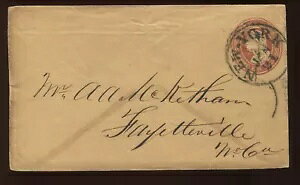 NEW-YORK
Mr. A A McKethan
Fayetteville
No. Ca